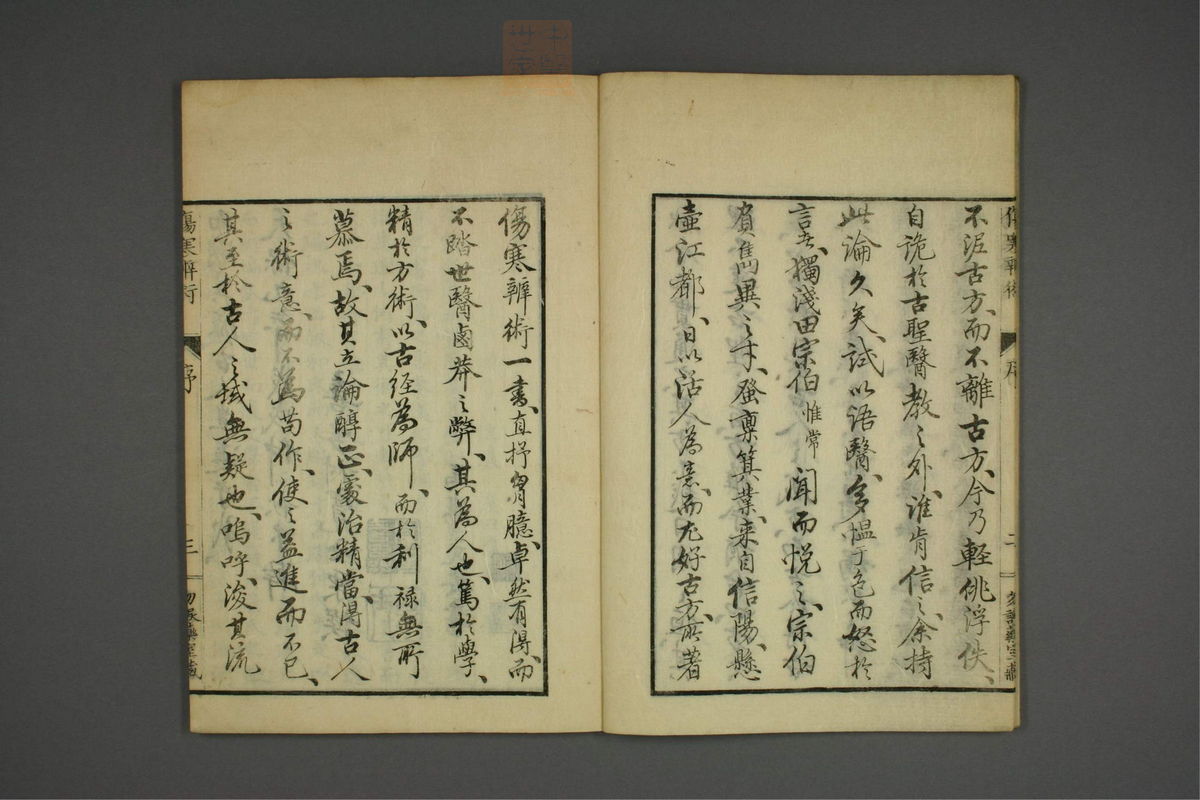 不泥古方、而不離古方、今乃輕佻浮佚、
自詭於古聖醫教之外、誰肯信之、余持
此論久矣、試以語醫、多慍于色而怒於
言者、獨淺田宗伯惟常聞而悅之、宗伯
負雋異之才、發稟箕業、來自信陽、懸
壺江都、日以活人為意、而尤好古方、所著
傷寒辨術 序 二
傷寒辨術一書、直抒胷臆、卓然有得、而
不踏世醫鹵莽之弊、其為人也、篤於學、
精於方術、以古經為師、而於利祿無所
慕焉、故其立論醇正、處治精當、得古人
之術意、而不為苟作、使之益進而不已、
其至於古人之域無疑也、嗚呼、浚其流
傷寒辨術 序 三